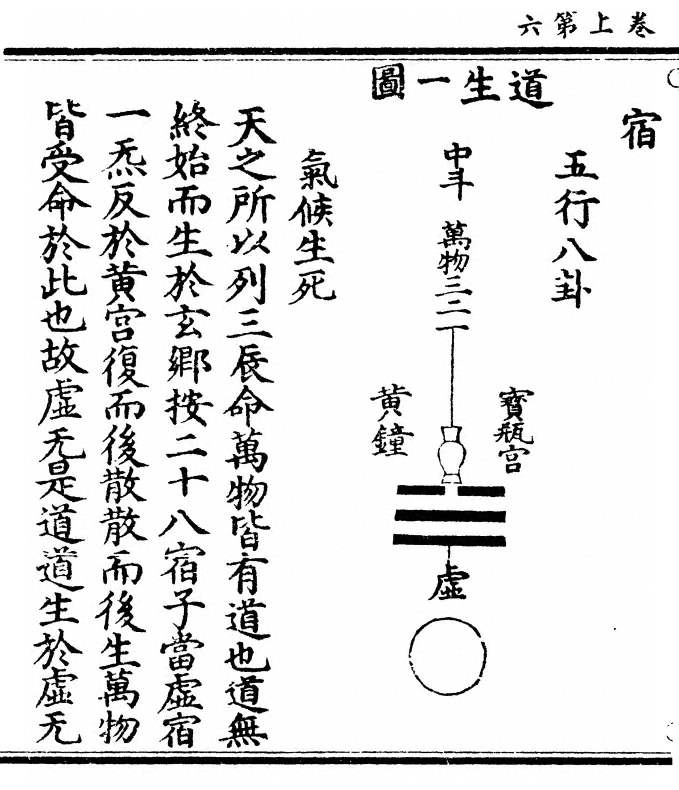 卷上第六
宿
五行八卦
道生一圖
寶瓶宮
中斗
萬物三二一
虛
黃鐘
氣候生死
天之所以列三辰命萬物皆有道也道無
終始而生於玄鄉按二十八宿子當虛宿
一炁反於黃宮復而後散散而後生萬物
皆受命於此也故虛无是道道生於虛无